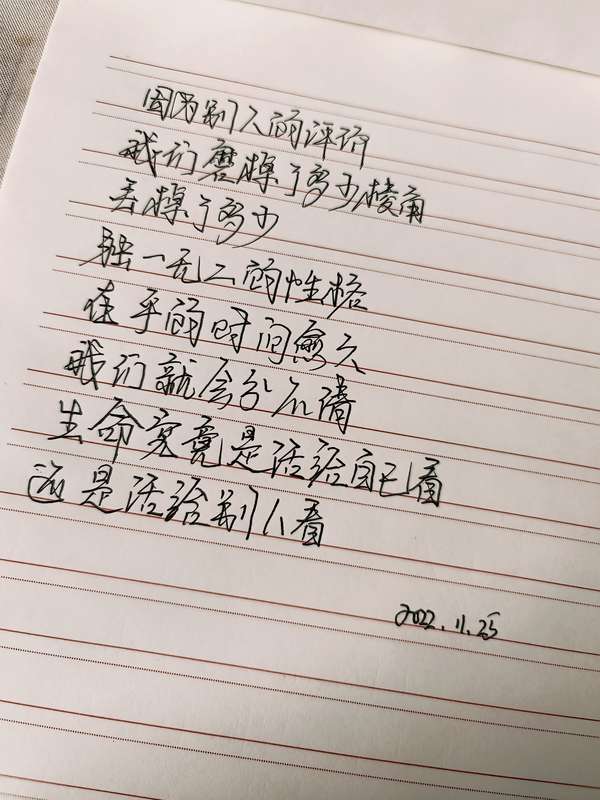 因为别人的评价
我们磨掉了多少棱角
丢掉了多少
独一无二的性格
在乎的时间愈久
我们就会分不清
生命究竟是活给自己看
还是活给别人看
2022.11.25